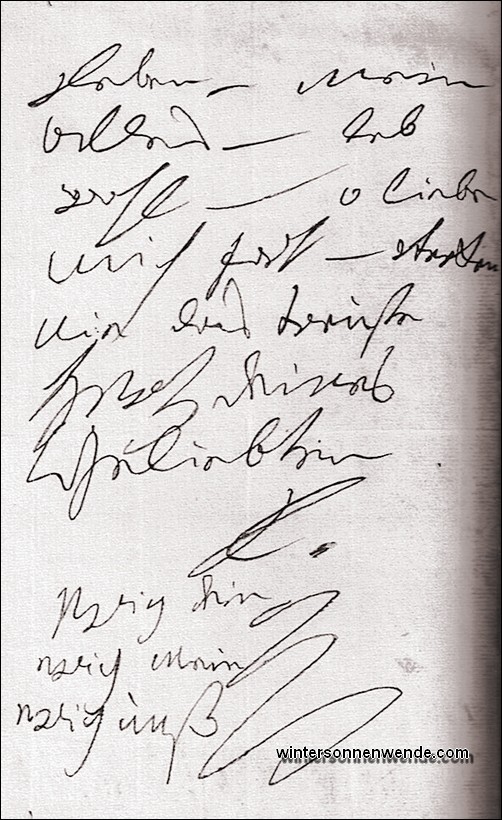 Leben – Mein
alles – leb
wohl – o liebe
mich fort – verken
nie das treuste
Herz deines
Geliebten
L.
ewig dein
ewig mein
ewig unß
wintersonnenwende.com